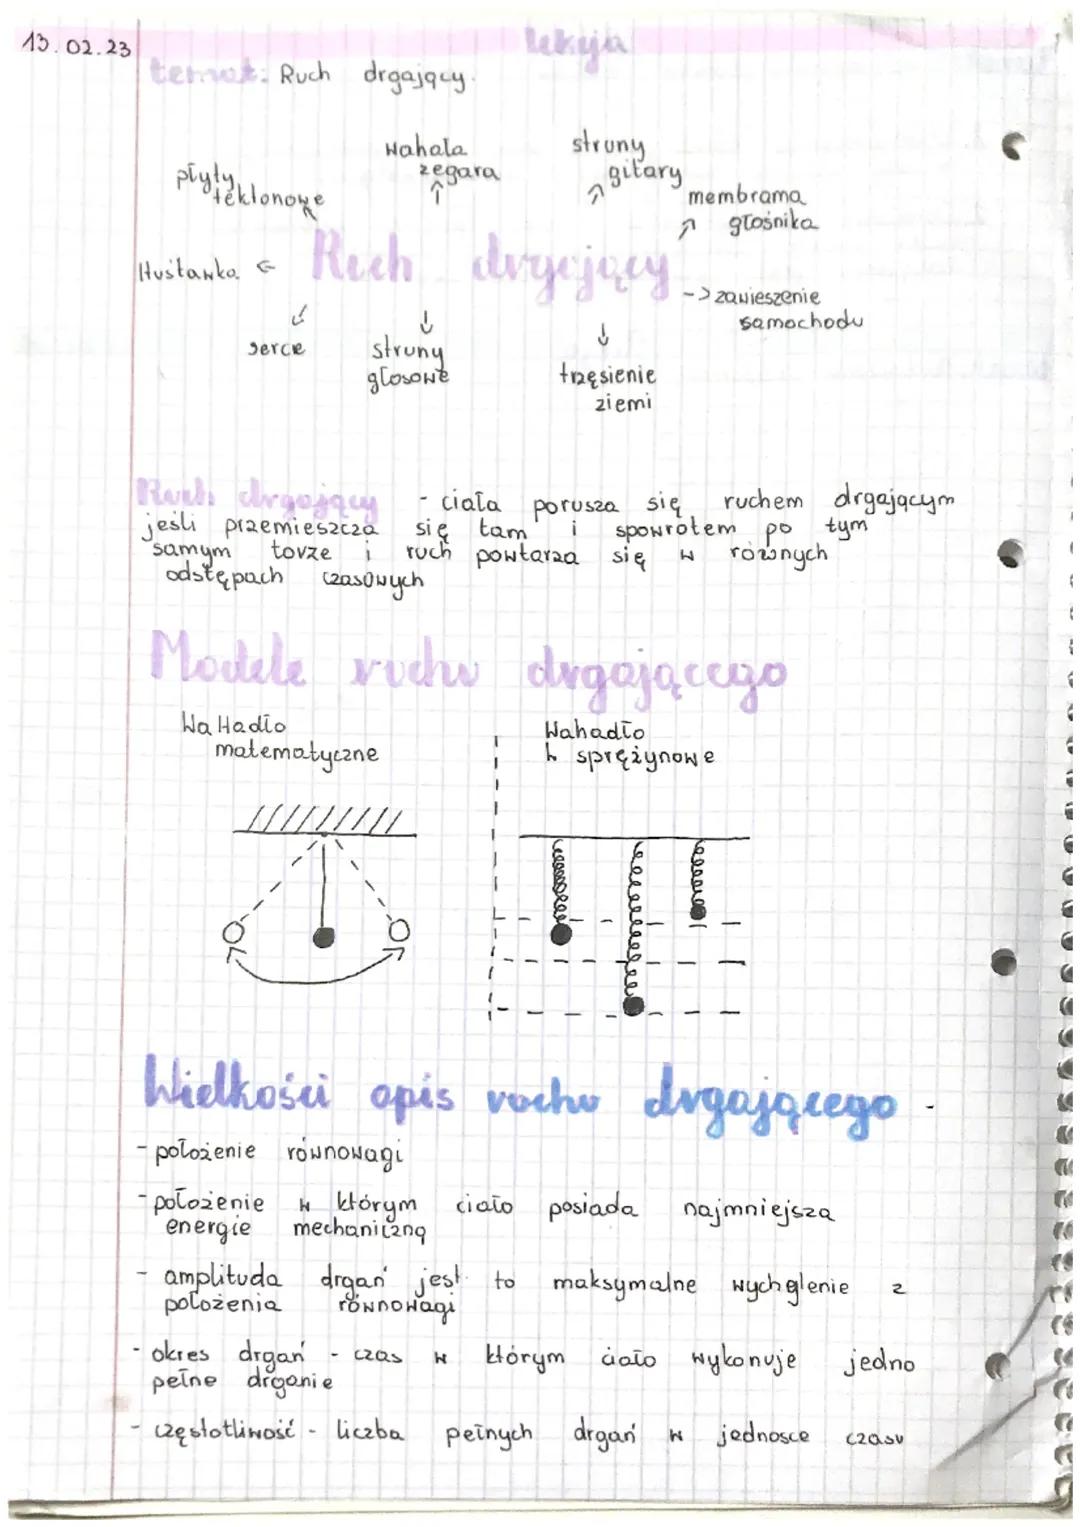 13.02.23
lekcja
temat: Ruch drgający.
wahała
zegara
struny
gitary
płyty
teklonowe
membrama
głośnika
Huśtawka
Ruch drgający
-> zawieszenie
samochodu
serce
struny
głosowe
trzęsienie
ziemi
Ruch drgający - ciała porusza się ruchem drgającym
jeśli przemieszcza się tam i spowrotem po tym
samym tovze i ruch powtarza się w róẃnych
odstępach czasowych
Modele ruchu drgającego
WaHadło
matematyczne
Wahadło
sprężynowe
Wielkości opis ruchu drgającego.
- położenie równowagi
- położenie w którym ciało posiada najmniejsza
energie mechaniczną
- amplituda drgań jest to maksymalne wychylenie z
położenia równowagi
- okres drgań - czas w którym ciało wykonuje jedno
pełne drganie
- częstotliwość - liczba pełnych drgań w jednosce czasu